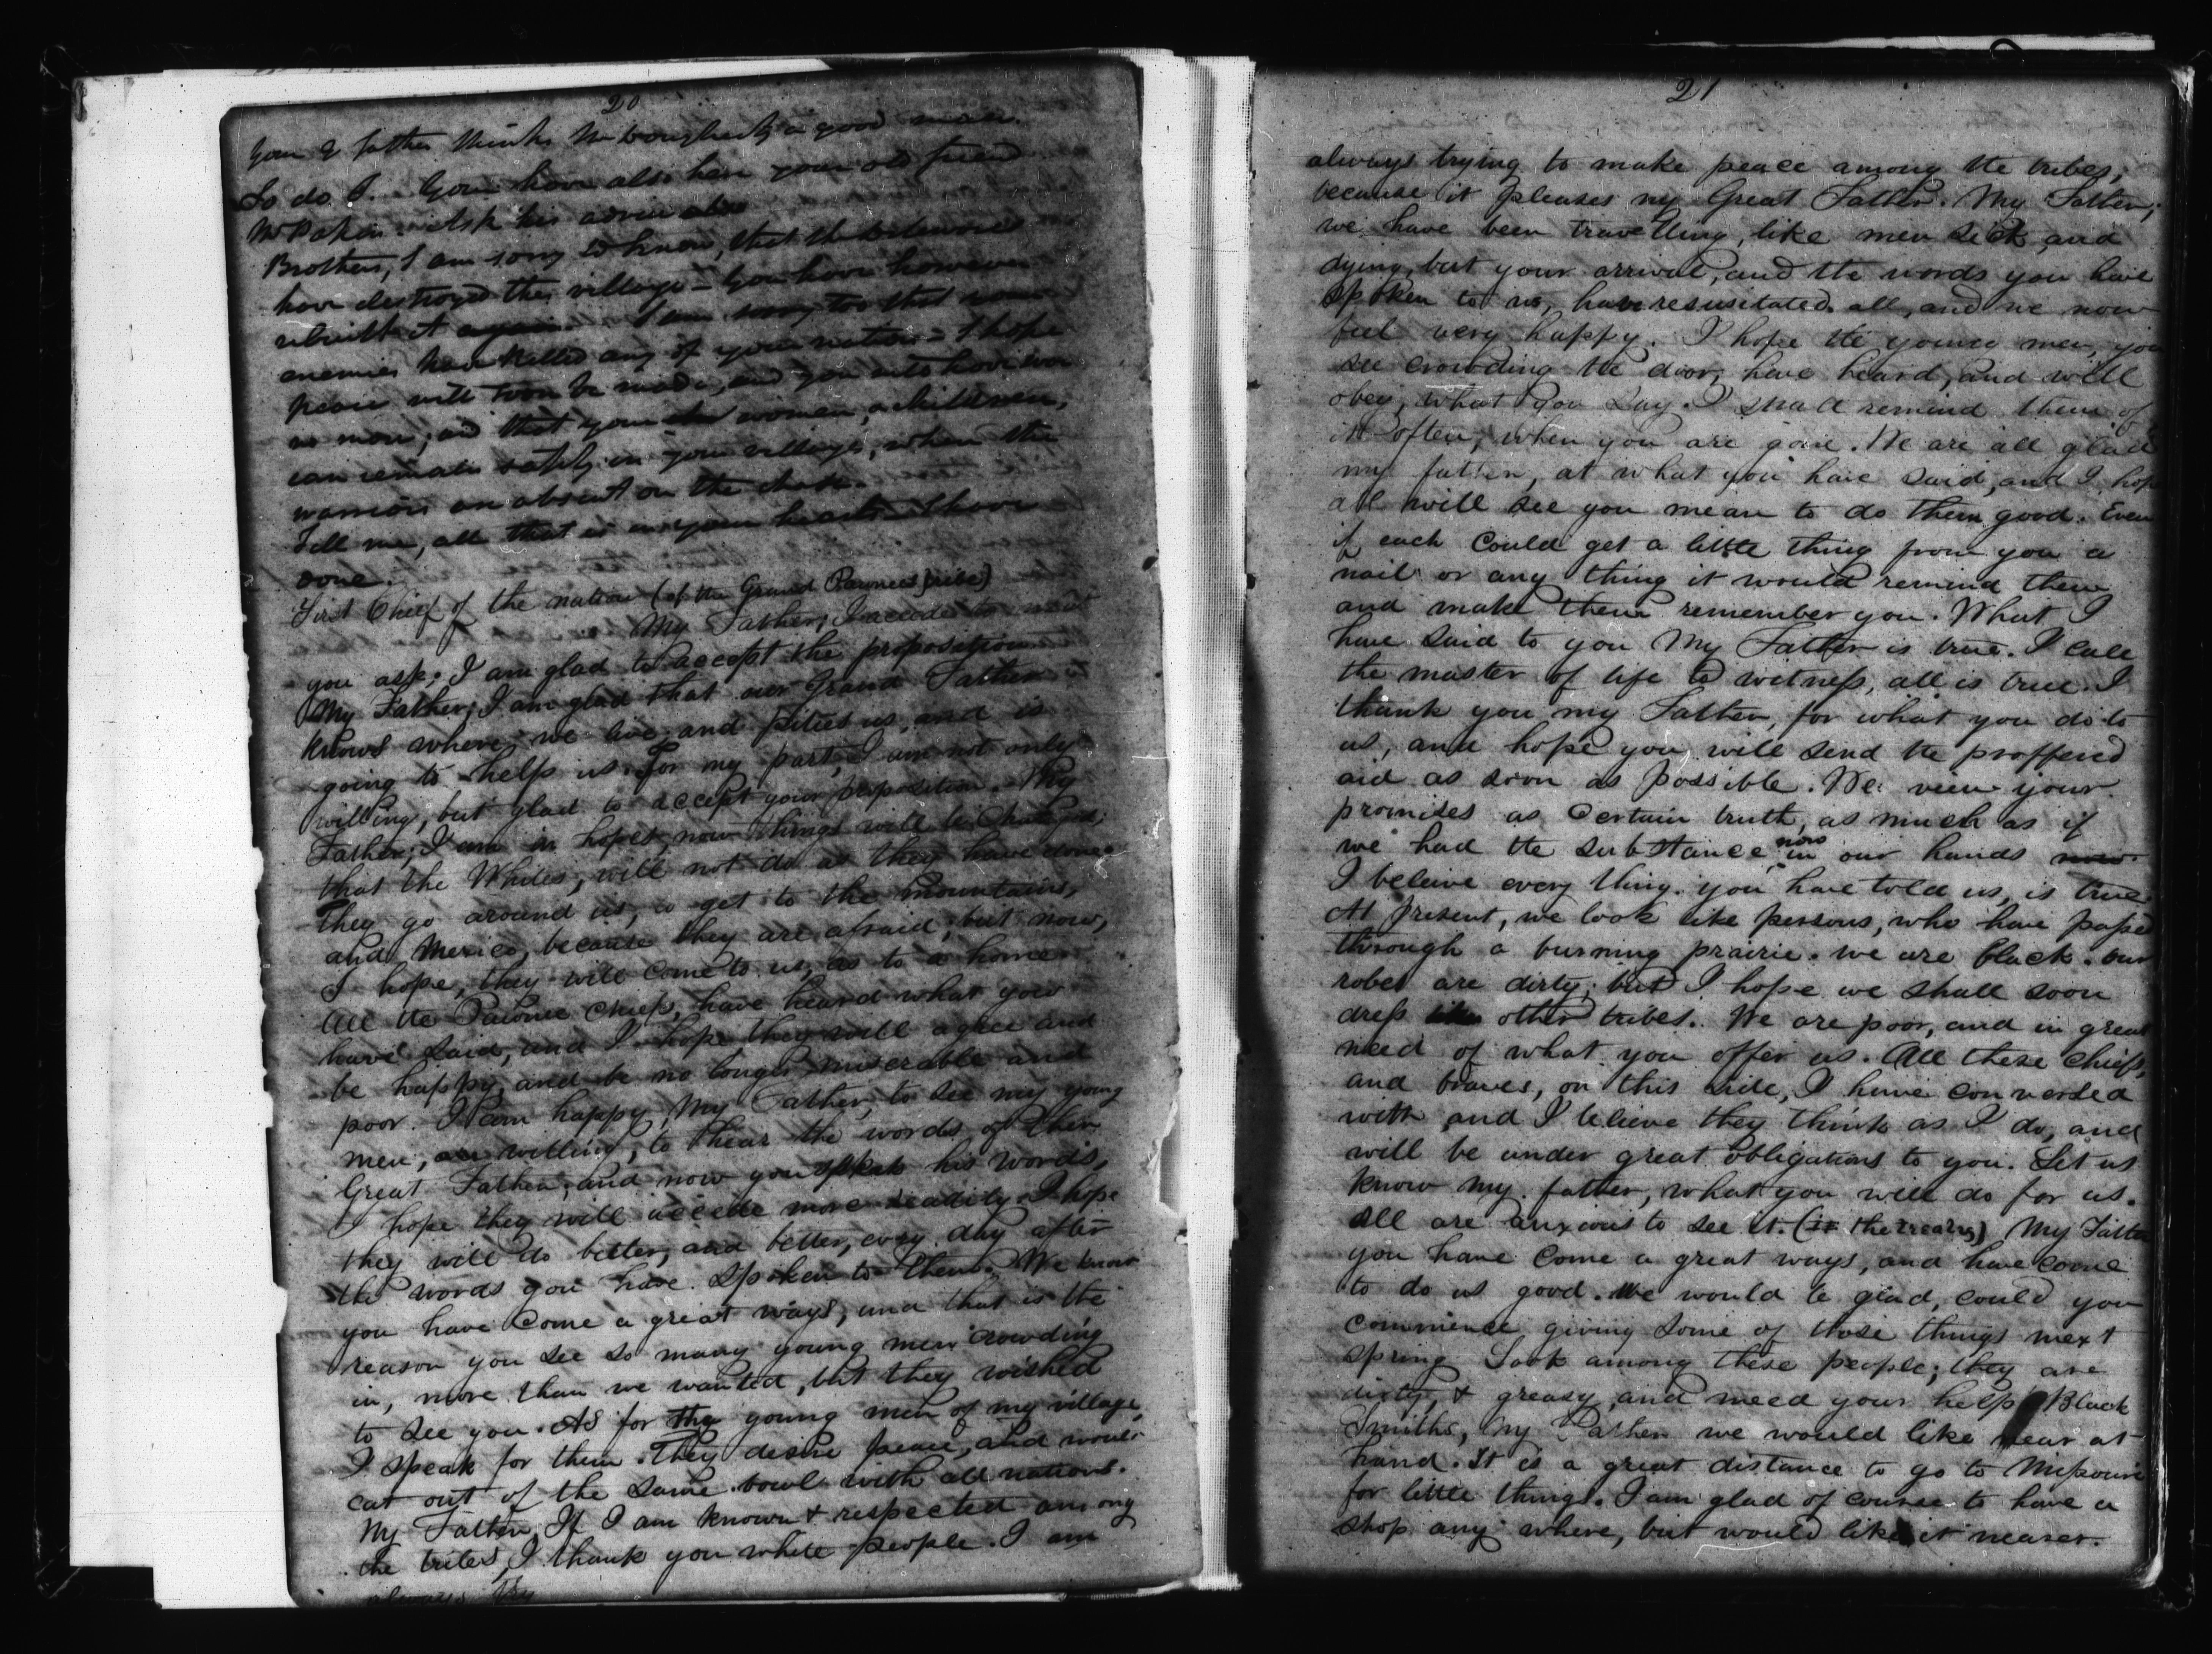 20
Your G father thinks Mr Dougherty a good man.
So do I. You have also here your old friend
Mr Papin. Ask his advice also
Brothers, I am sorry to know, that the Delawares
have destroyed the village - You have however
rebuilt it again. I am sorry too that your
enemies have killed any of your nation - I hope
peace will soon be made, and you will have war
no more, and that your women, & children,
can remain safely in your villages, when the
warriors are absent on the chase.
Tell me, all that is in your hearts I have
done.
First Chief of the nation (of the Grand Pawnees tribe)
My Father; I accede to what
you ask; I am glad to accept the proposition
My Father; I am glad that our Grand Father
knows where we live, and pities us, and is
going to help us. For my part, I am not only
willing, but glad to accept your proposition. My
Father; I am in hopes, now things will be changed;
that the Whites, will not do as they have done.
They go around us, to get to the mountains,
and Mexico, because they are afraid; but now,
I hope, they will come to us, as to a home
All the Pawnee Chiefs, have heard what you
have said, and I hope they will agree and
be happy and be no longer miserable and
poor. I am happy, My Father, to see my young
men, are willing, to hear the words of their
Great Father; and now you speak his words,
I hope they will accede more readily. I hope
they will do better, and better, every day after
the words you have spoken to them. We know
you have come a great ways, and that is the
reason you see so many young men crowding
in, more than we wanted, but they wished
to see you. As for the young men of my village,
I speak for them. They desire peace, and would
eat out of the same bowl with all nations.
My Father, If I am known & respected among
the tribes, I thank you white people. I am
always try
21
always trying to make peace among the tribes;
because it pleases my Great Father. My Father;
we have been travelling, like men sick, and
dying, but your arrival, and the words you have
spoken to us, have resusitated all, and we now
feel very happy. I hope the young men, you
see crowding the door, have heard, and will
obey, what you say. I shall remind them of
it often, when you are gone. We are all glad
my father, at what you have said, and I hope
all will see you mean to do them good. Even
if each could get a little thing from you a
nail or any thing it would remind them
and make them remember you. What I
have said to you My Father is true. I call
the master of life to witness, all is true. I
thank you my Father, for what you do to
us, and hope you will send the proffered
aid as soon as possible. We view your
promises as certain truth, as much as if
we had the substance now in our hands now
I beleive every thing you have told us, is true
At present, we look like persons, who have passed
through a burning prairie. we are black. our
robes are dirty; but I hope we shall soon
dress like other tribes. We are poor, and in great
need of what you offer us. All these Chiefs,
and braves, on this side, I have conversed
with and I believe they think as I do, and
will be under great obligations to you. Let us
know my father, what you will do for us.
All are anxious to see it. (the treaty) My Father
you have come a great ways, and have come
to do us good. We would be glad, could you
commence giving some of those things next
spring Look among these people; they are
dirty, & greasy, and need your help Black
Smiths, My Father we would like near at
hand. It is a great distance to go to Missouri
for little things. I am glad of course to have a
shop any where, but would like it nearer.